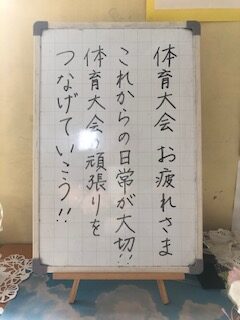 体育大会 お疲れさま
これからの日常が大切!!
体育大会の頑張りを
つなげていこう!!